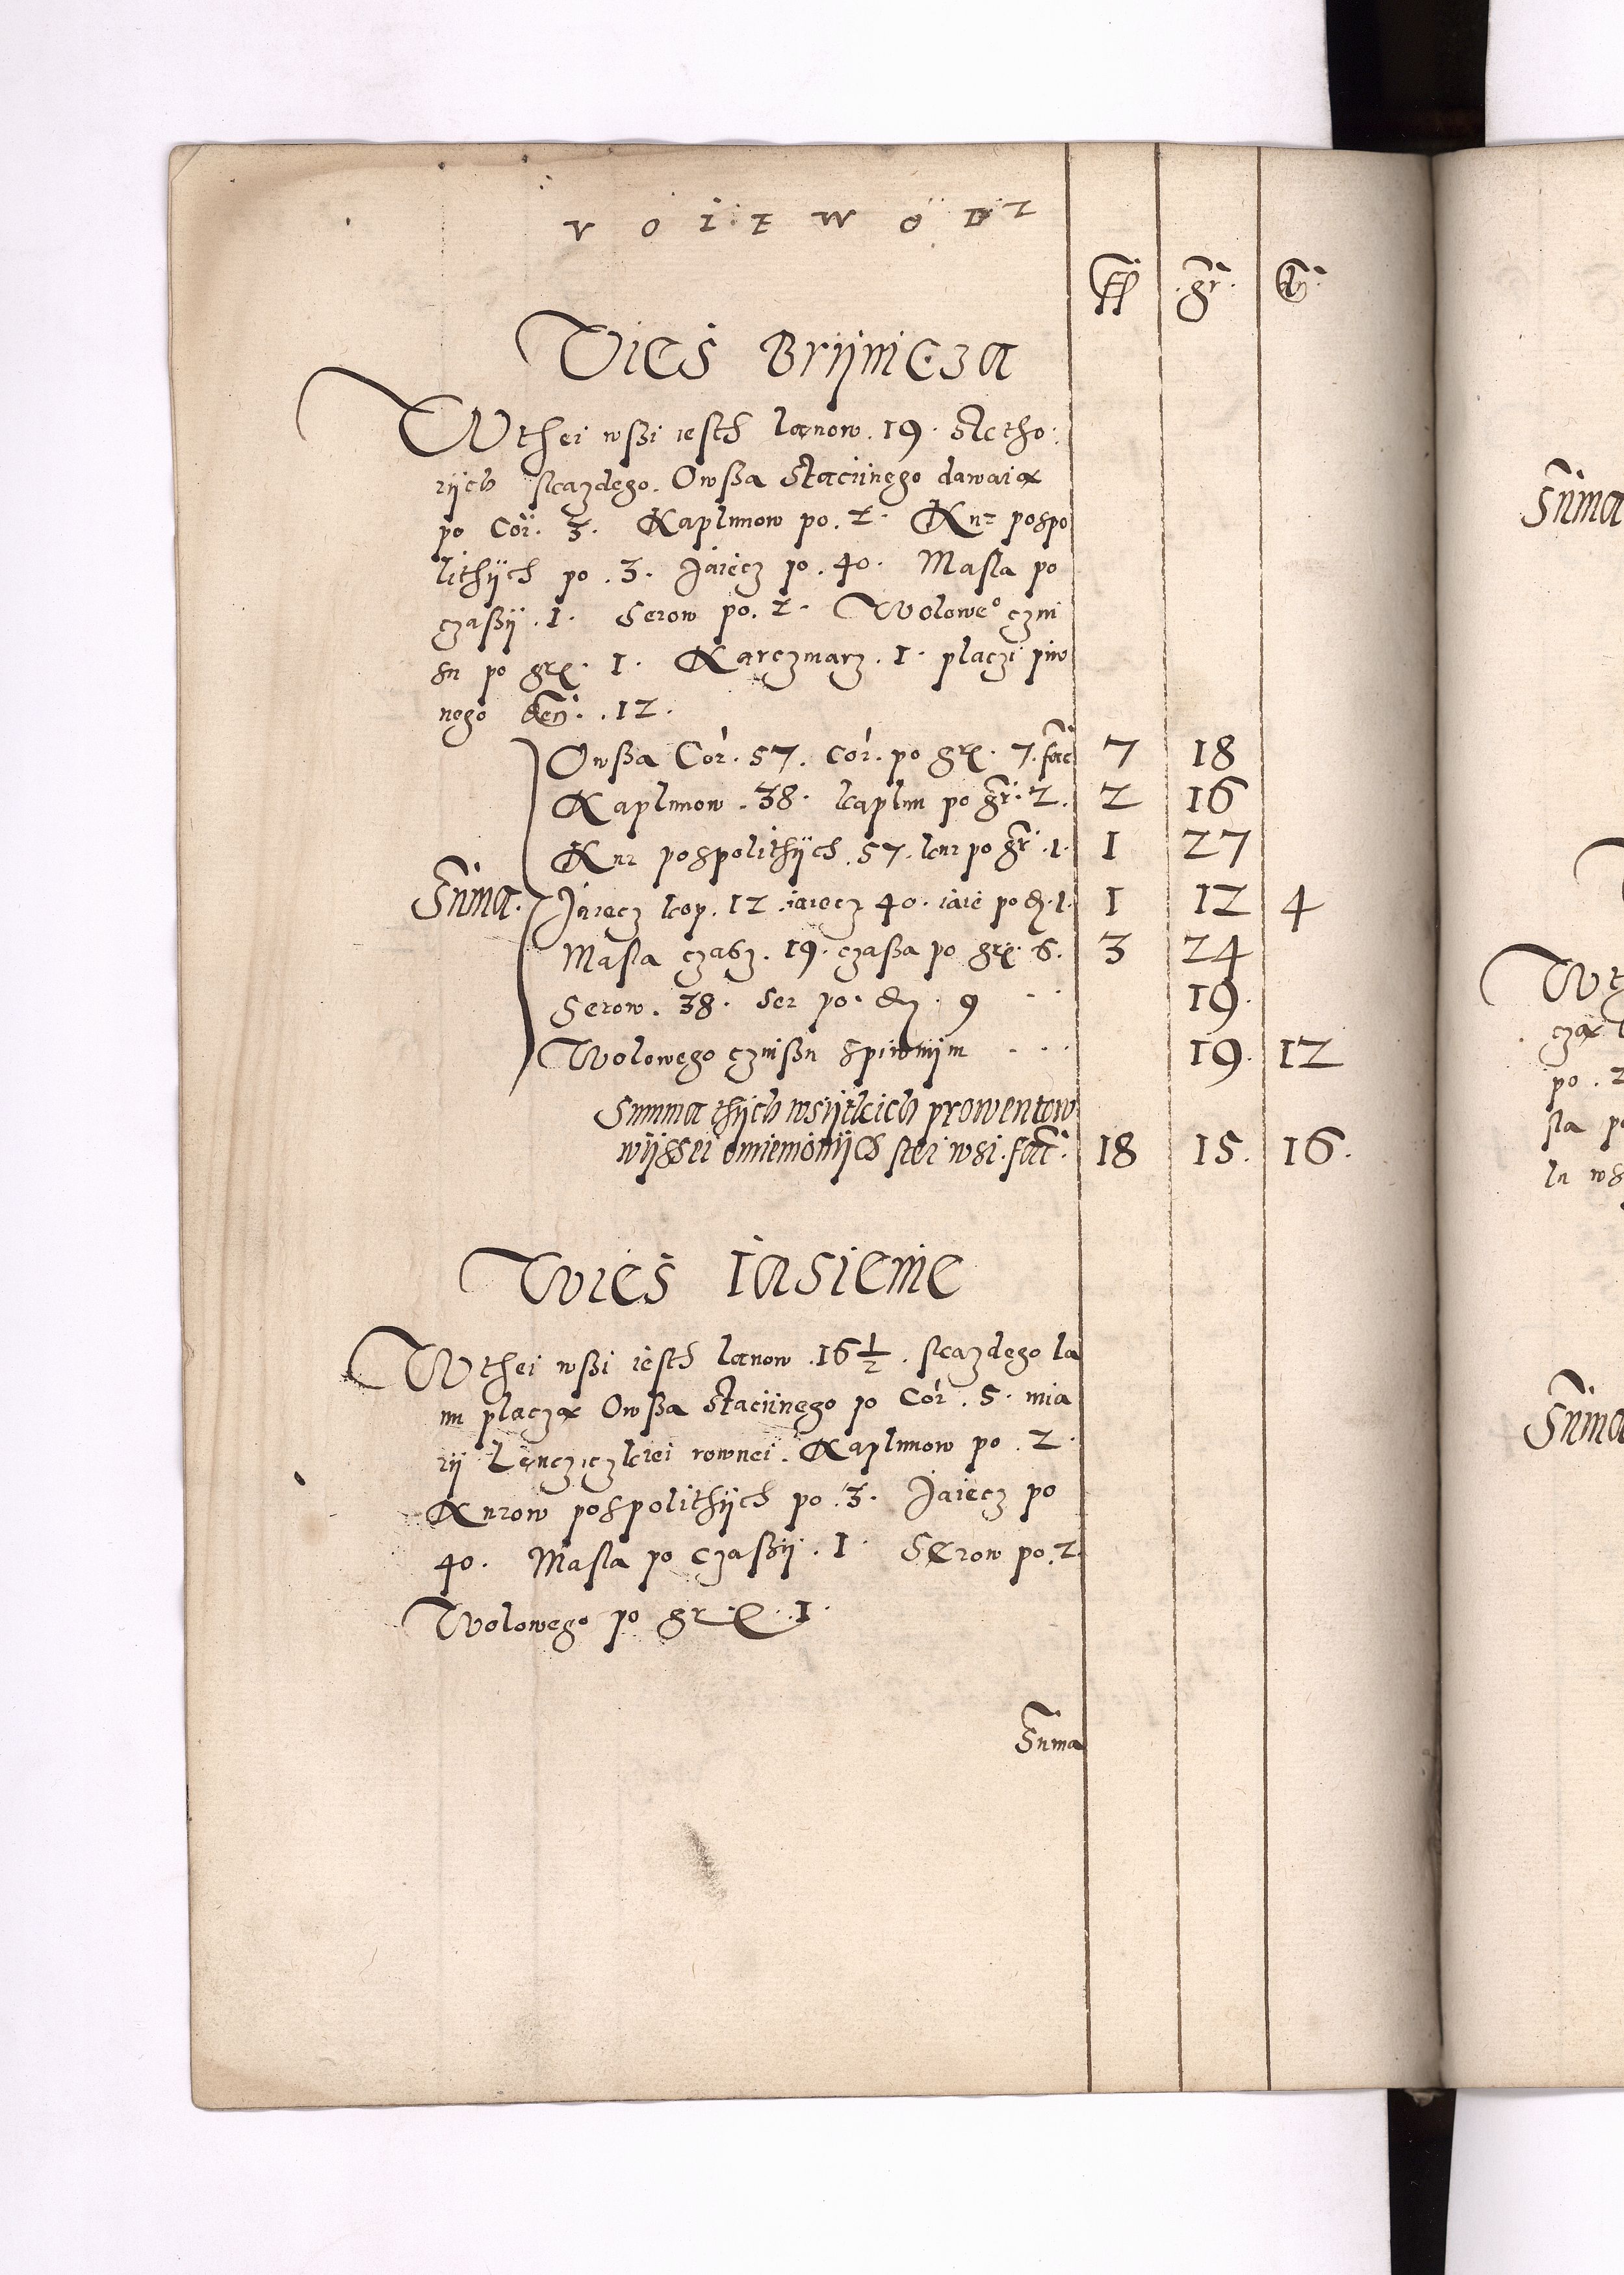 V O I E W O D Z
ff gr. d.
Vieś Brijnicza
Wthei wßi iesth lanow . 19 . sktho:
rijch skazdego . Owßa Staciinego dawaią
po Cor. 3. Kaplunow po . 2. Kur pospo
lithijch po . 3. Jaiecz po . 40. Masla po
czaßij . 1. Serow po. 2. Wolowe° czin
su po grx. 1. Karczmarz . 1. placzi piw
nego den. . 12.
Owßa Cor. 57. cor. po grx. 7. fac 7 18
Kaplunow . 38. kaplun po gr. 2. 2 16
Kur pospolithijch . 57. kur po gr. 1. 1 27
Suma. Jaiecz kop. 12 . iaiecz 40. iaie po d. 1. 1 12 4
Masla czasz. 19. czaßa po grx. 6. 3 24
Serow. 38. Ser po. d. 9 19.
Wolowego czinßu spiwnijm 19. 12
Summa thijch wsijtkich prowentow
wijssei omienionijch stei wsi. fac. 18 15. 16.
Wieś Iasienie
Wthei wßi iesth lanow . 16 1/2 . skazdego la
nu placzą Owßa Staciinego po Cor. 5. mia
rij Lencziczkiei rownei. Kaplunow po . 2.
Kurow pospolithijch po . 3. Jaiecz po
40. Masla po czaßij . 1. Serow po. 2.
Wolowego po grx . 1.
Suma
Suma
Wth
czą
po . 2
sla po
lu ws
Suma